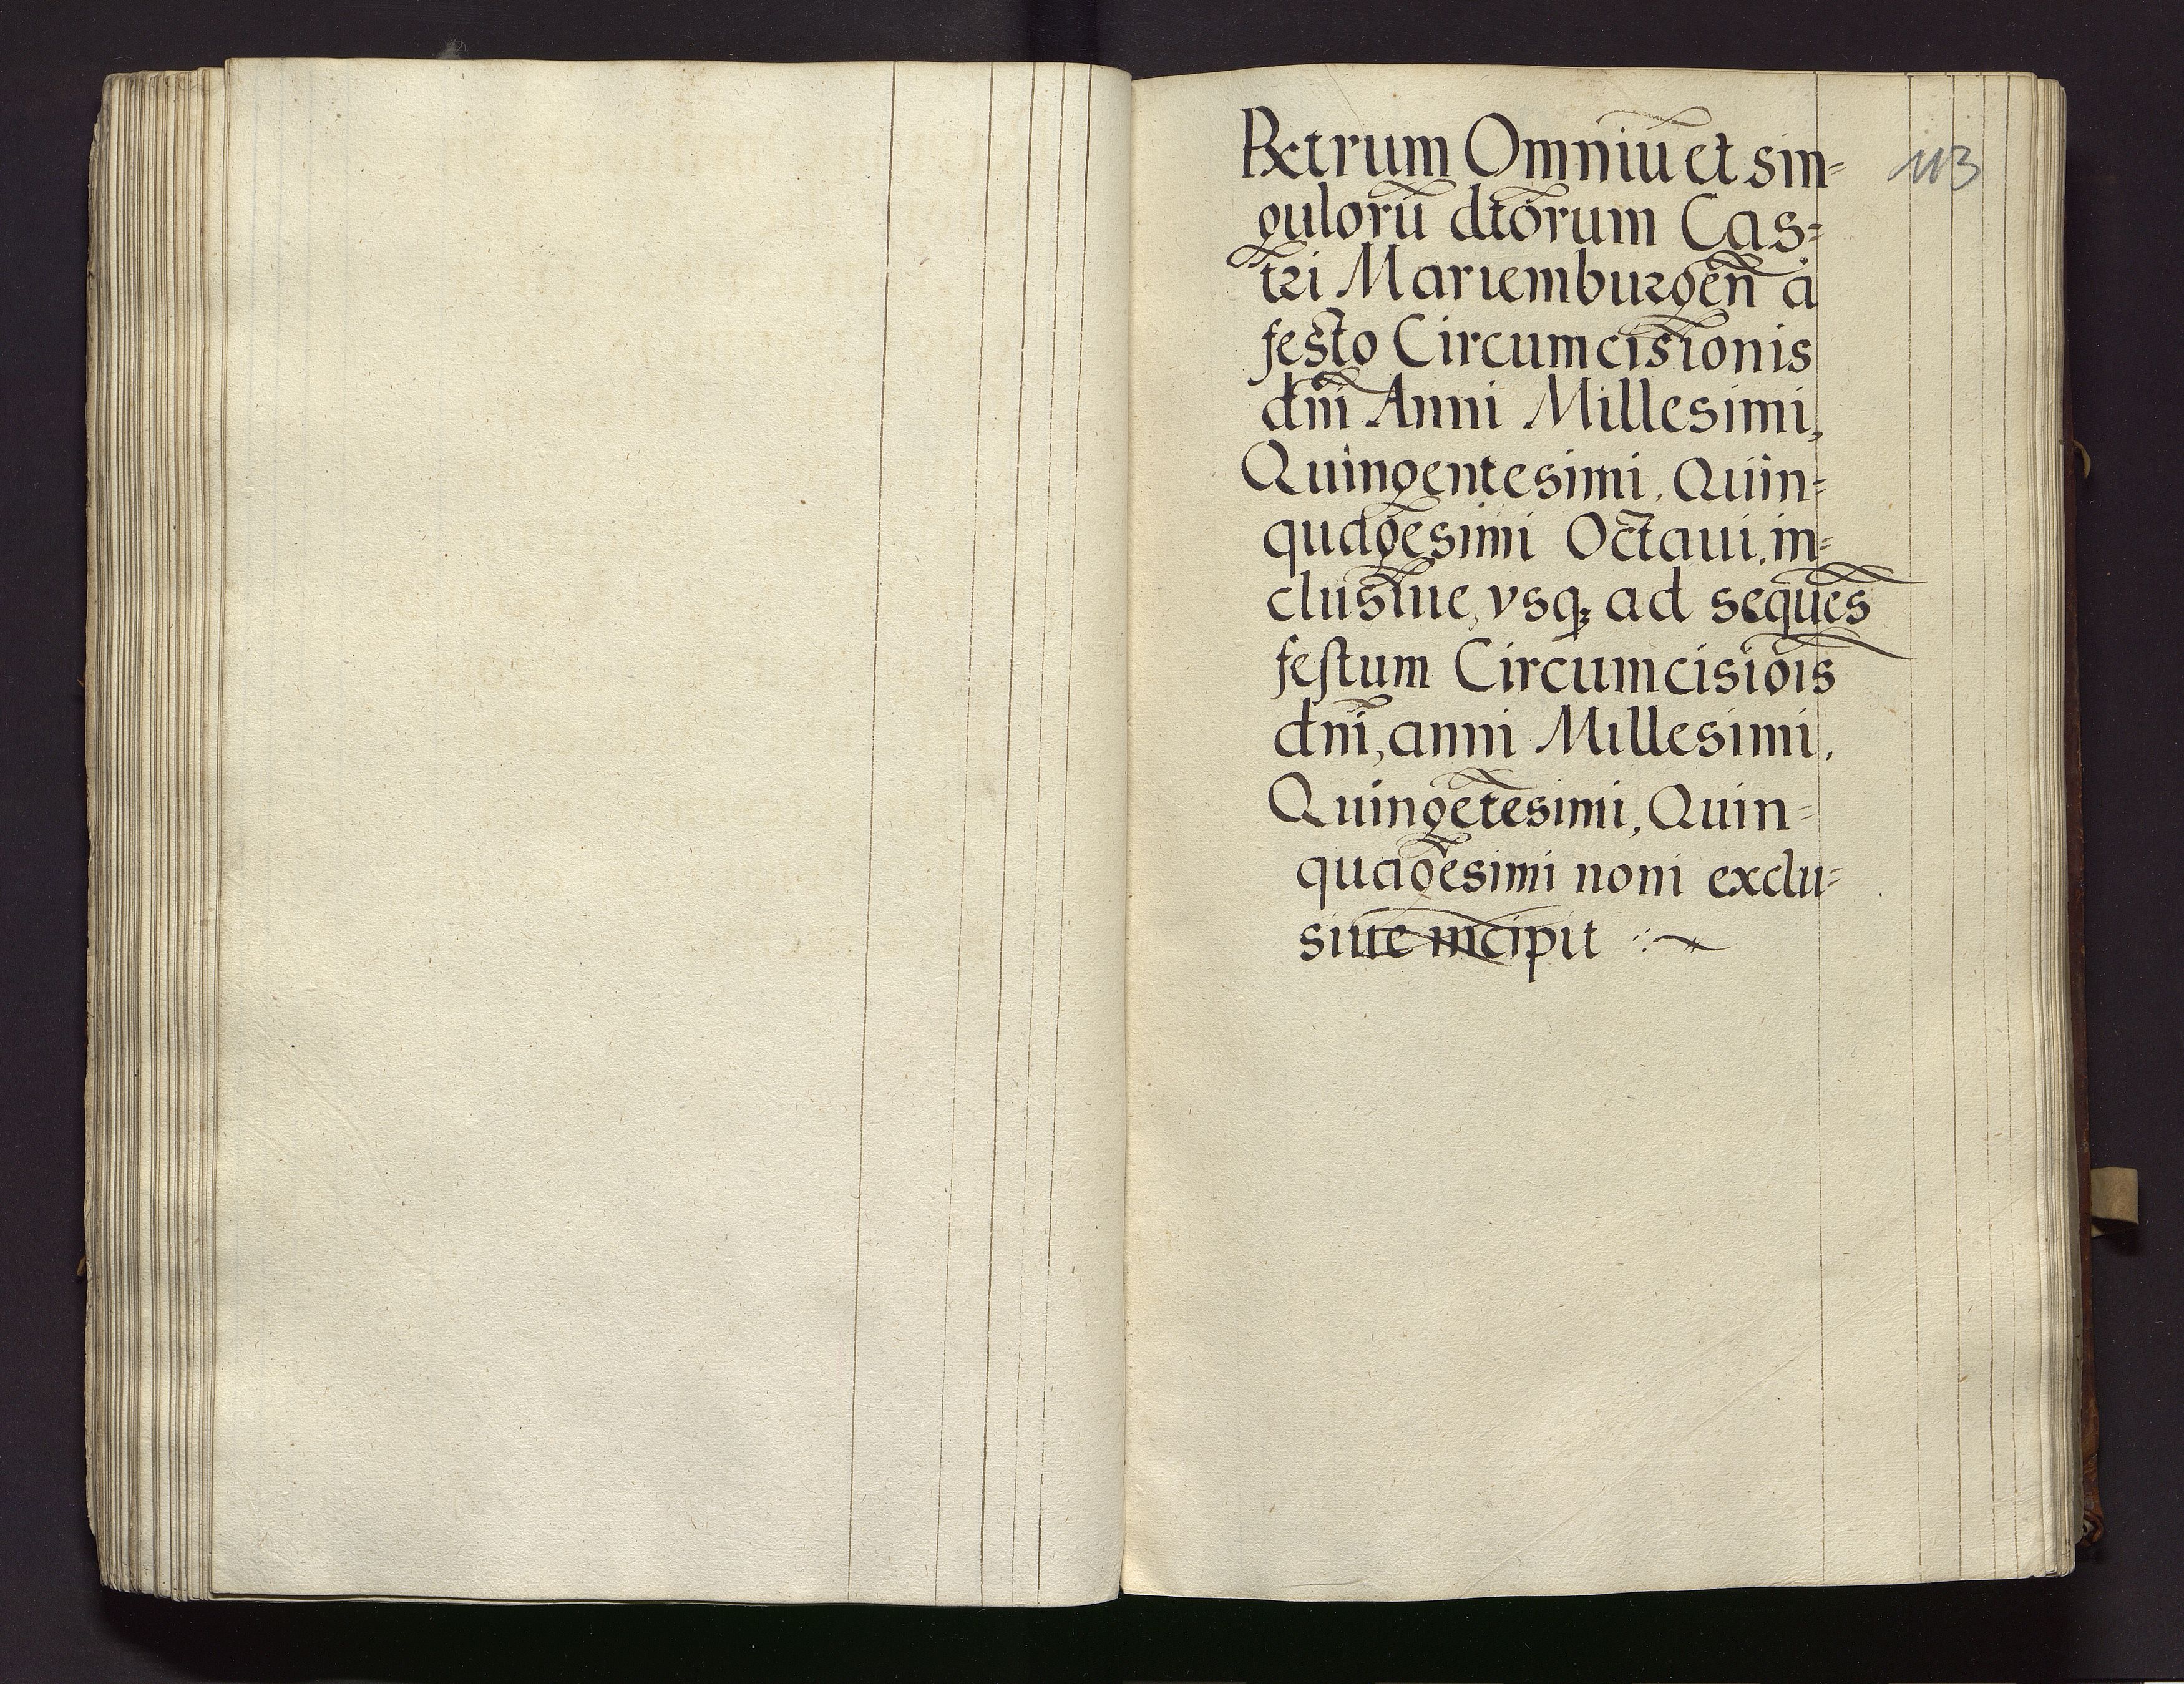 Rxtrum Omniū et sin=
gulorū dtōrum Cas=
tri Mariemburgeñ a
festo Circumcisionis
dñi Anni Millesimi,
Quingentesimi, Quin=
quagesimi Octaui, in=
clusiue, vsq; ad sequēs
festum Circumcisiōis
dñi, anni Millesimi,
Quingētesimi, Quin=
quagesimi noni exclu=
siue incipit
113